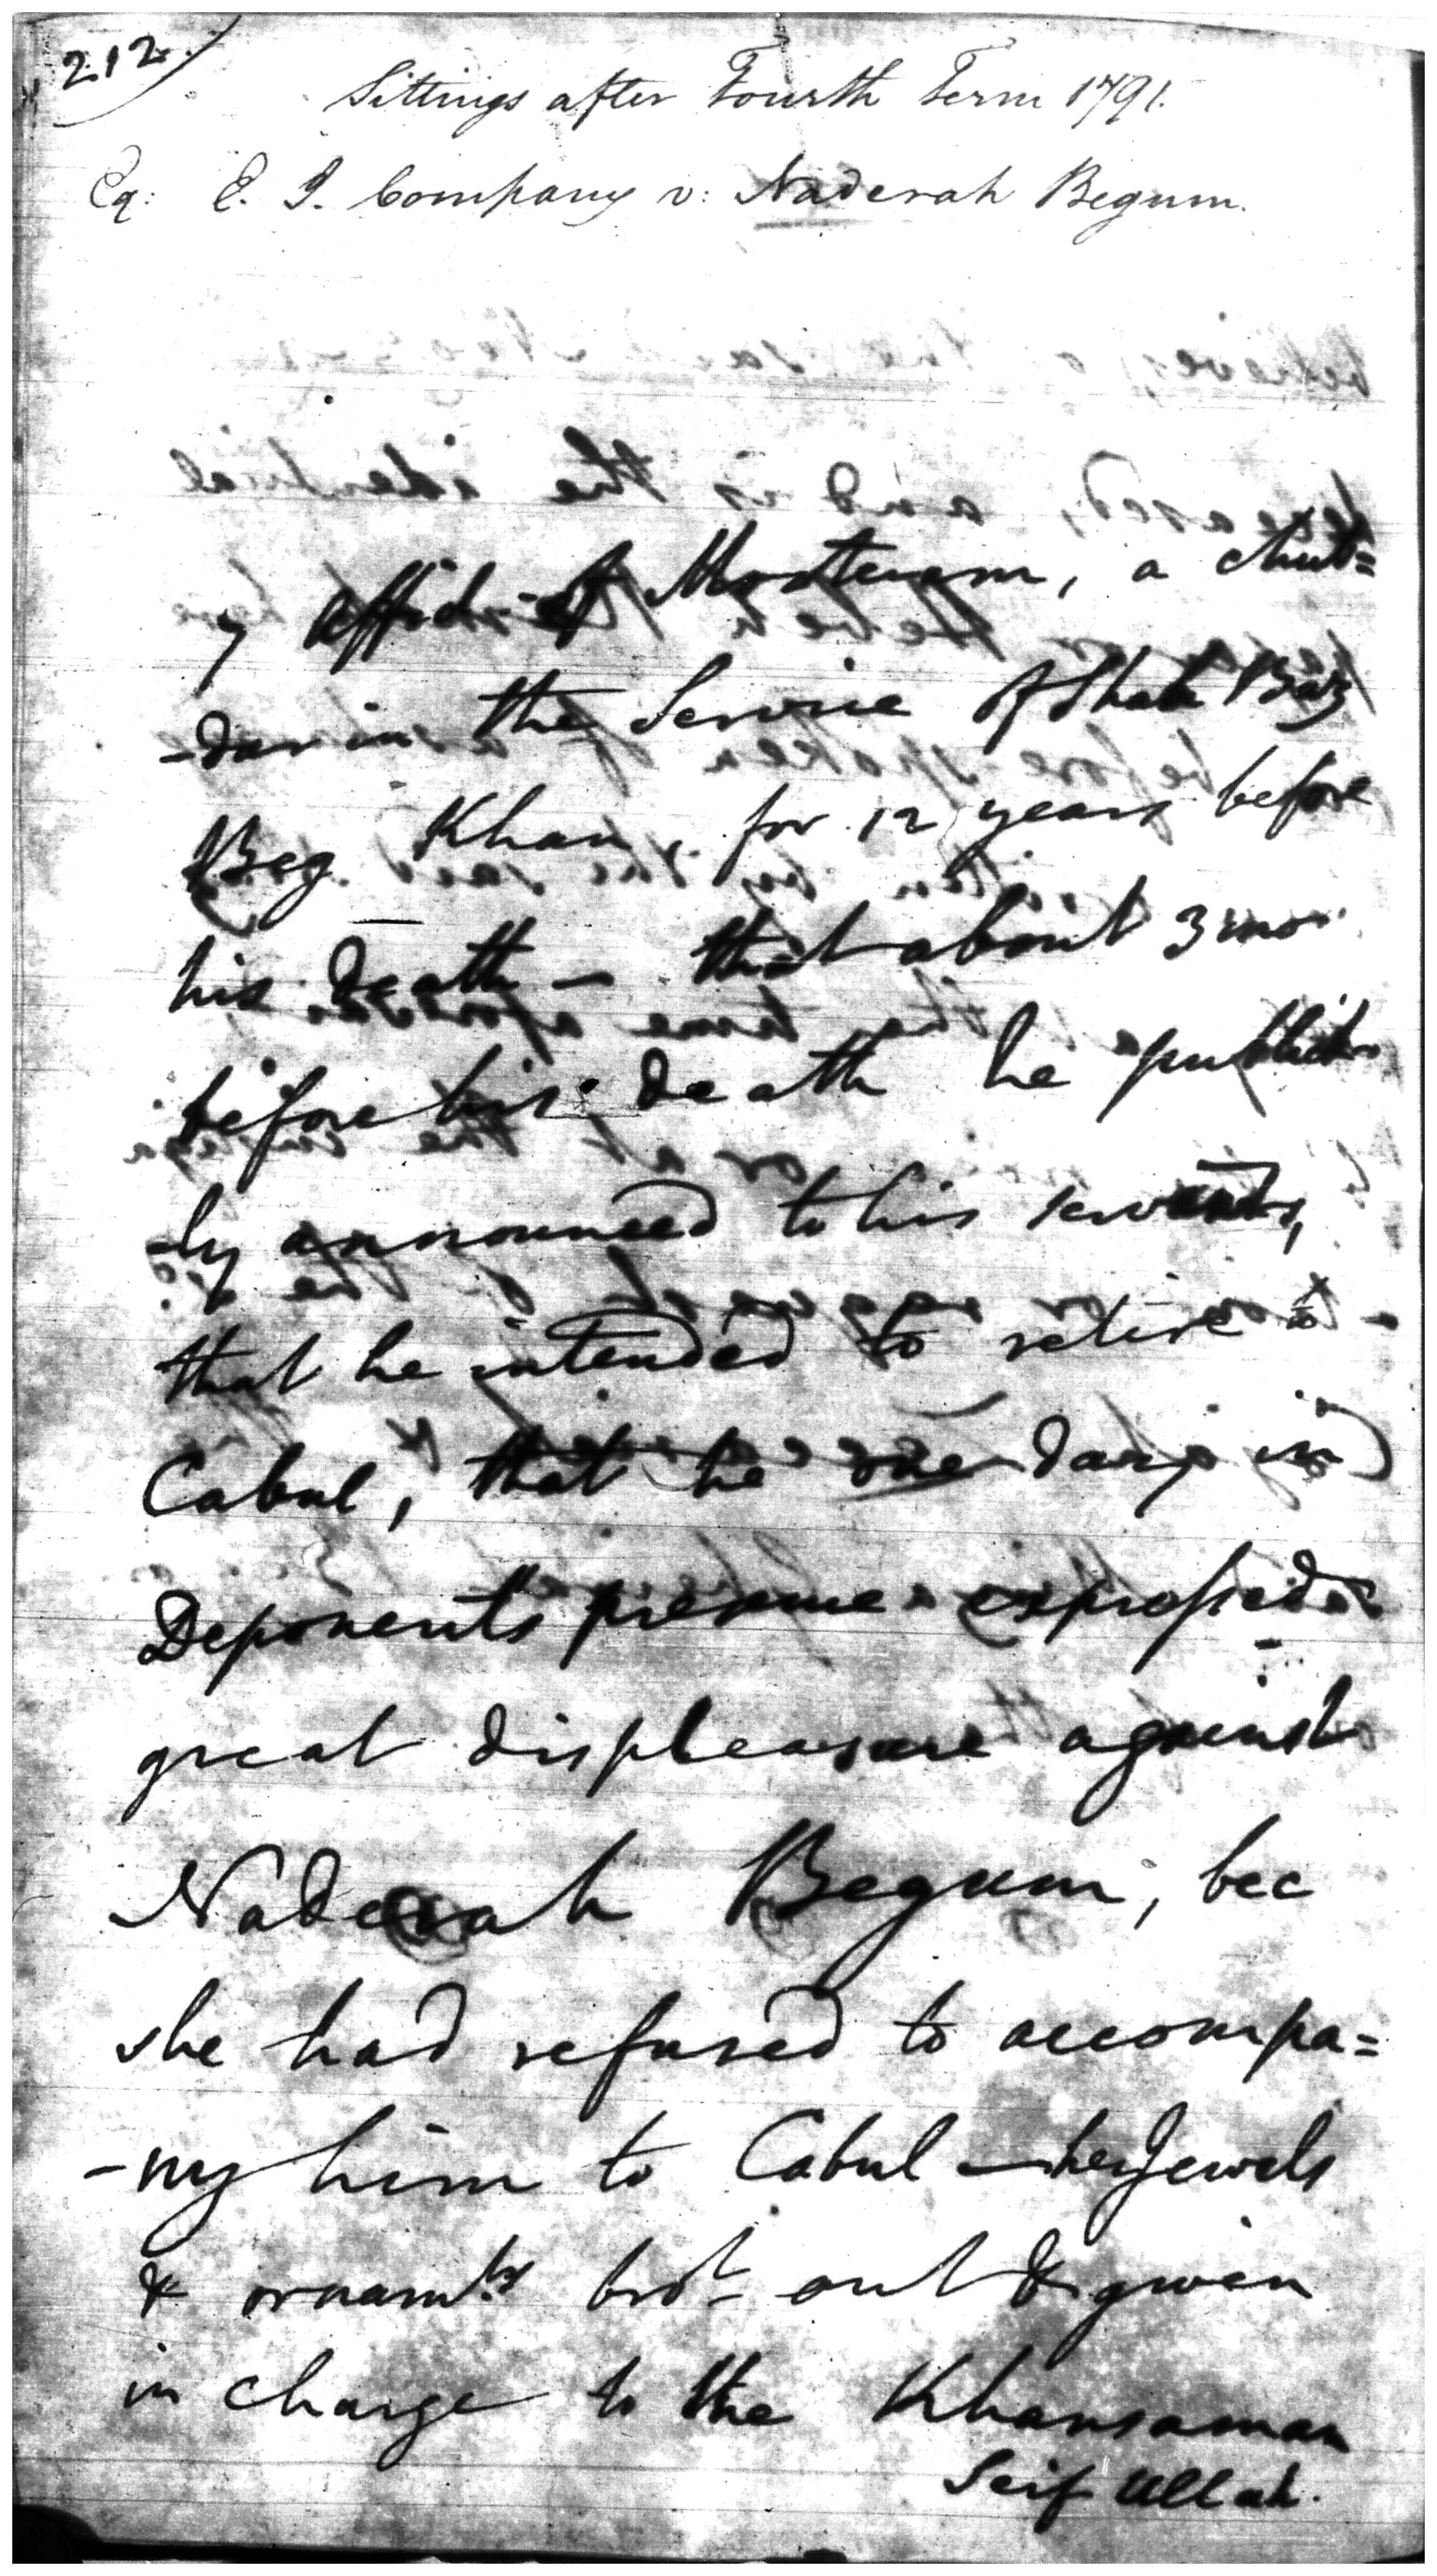 212.
Sittings after Fourth Term 1791.
Eq: E. I. Company v: Naderah Begum.
y affid: of a chub=
-dar in the Service of Shah Baz
Beg Khan, for 12 years before
his death – that about 3 mo
before his death he public
-ly announced to his servants,
that he intended to retire to
Cabul, that he one day in
Deponents presence expressed
great displeasure against
Naderah Begum, bec
she had refused to accompa=
-ny him to Cabul – her Jewels
& ornamts brot out & given
in charge to the Khansaman
Seif Ullah.